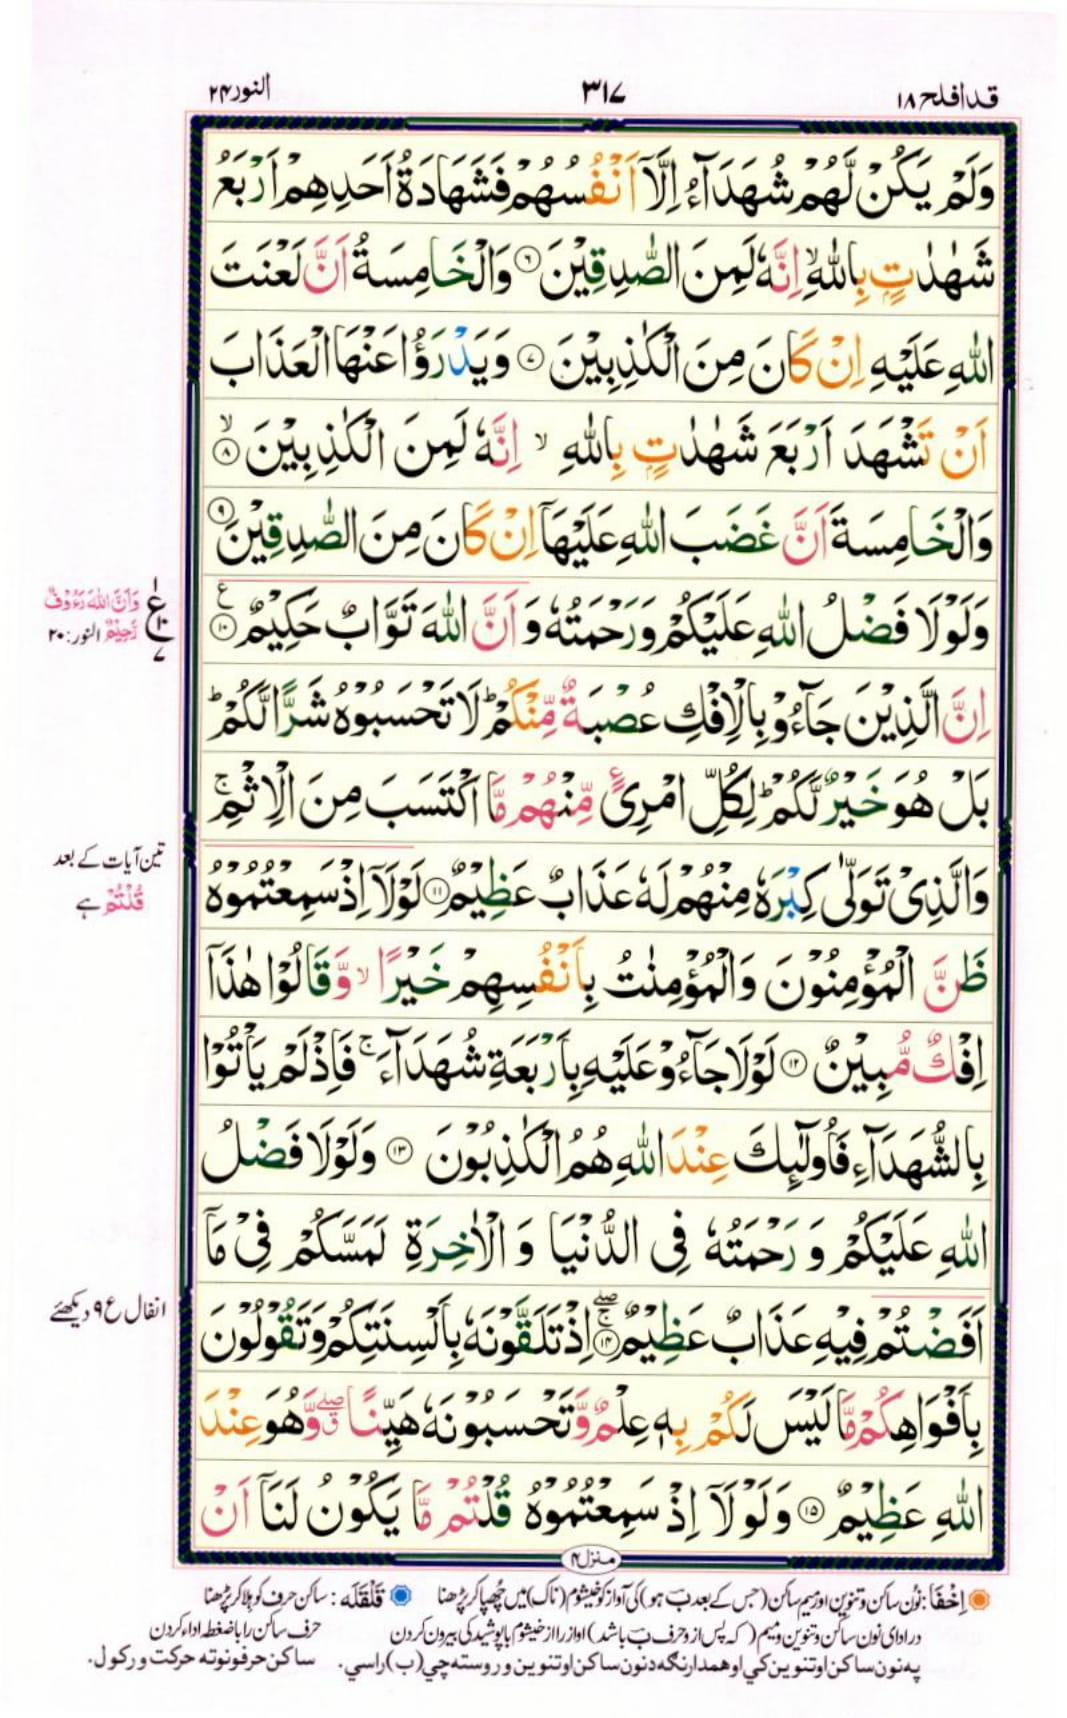 قدافلح ۱۸
۳۱۷
النور ۲۴
وَلَمْ يَكُنْ لَّهُمْ شُهَدَآءُ اِلَّآ اَنْفُسُهُمْ فَشَهَادَةُ اَحَدِهِمْ اَرْبَعُ
شَهٰدٰتٍۭ بِاللّٰهِۙ اِنَّهٗ لَمِنَ الصّٰدِقِيْنَ ۶ وَالْخَامِسَةُ اَنَّ لَعْنَتَ
اللّٰهِ عَلَيْهِ اِنْ كَانَ مِنَ الْكٰذِبِيْنَ ۷ وَيَدْرَؤُا عَنْهَا الْعَذَابَ
اَنْ تَشْهَدَ اَرْبَعَ شَهٰدٰتٍۭ بِاللّٰهِ ۙ اِنَّهٗ لَمِنَ الْكٰذِبِيْنَ ۙ۸
وَالْخَامِسَةَ اَنَّ غَضَبَ اللّٰهِ عَلَيْهَآ اِنْ كَانَ مِنَ الصّٰدِقِيْنَ ۹
وَلَوْلَا فَضْلُ اللّٰهِ عَلَيْكُمْ وَرَحْمَتُهٗ وَ اَنَّ اللّٰهَ تَوَّابٌ حَكِيْمٌ ۱۰ ع
ع ۱ ۱۰ ۷
وَاَنَّ اللّٰهَ رَءُوْفٌ
رَّحِيْمٌ النور: ۲۰
اِنَّ الَّذِيْنَ جَآءُوْ بِالْاِفْكِ عُصْبَةٌ مِّنْكُمْ ؕ لَا تَحْسَبُوْهُ شَرًّا لَّكُمْ ؕ
بَلْ هُوَ خَيْرٌ لَّكُمْ ؕ لِكُلِّ امْرِئٍ مِّنْهُمْ مَّا اكْتَسَبَ مِنَ الْاِثْمِ ۚ
وَالَّذِيْ تَوَلّٰى كِبْرَهٗ مِنْهُمْ لَهٗ عَذَابٌ عَظِيْمٌ ۱۱ لَوْلَآ اِذْ سَمِعْتُمُوْهُ
تین آیات کے بعد
قُلْتُمْ ہے
ظَنَّ الْمُؤْمِنُوْنَ وَالْمُؤْمِنٰتُ بِاَنْفُسِهِمْ خَيْرًا ۙ وَّقَالُوْا هٰذَآ
اِفْكٌ مُّبِيْنٌ ۱۲ لَوْلَا جَآءُوْ عَلَيْهِ بِاَرْبَعَةِ شُهَدَآءَ ۚ فَاِذْ لَمْ يَاْتُوْا
بِالشُّهَدَآءِ فَاُولٰٓئِكَ عِنْدَ اللّٰهِ هُمُ الْكٰذِبُوْنَ ۱۳ وَلَوْلَا فَضْلُ
اللّٰهِ عَلَيْكُمْ وَ رَحْمَتُهٗ فِى الدُّنْيَا وَ الْاٰخِرَةِ لَمَسَّكُمْ فِيْ مَآ
اَفَضْتُمْ فِيْهِ عَذَابٌ عَظِيْمٌ ۱۴ۚۖ اِذْ تَلَقَّوْنَهٗ بِاَلْسِنَتِكُمْ وَتَقُوْلُوْنَ
انفال ع ۹ دیکھئے
بِاَفْوَاهِكُمْ مَّا لَيْسَ لَكُمْ بِهٖ عِلْمٌ وَّتَحْسَبُوْنَهٗ هَيِّنًا ۖق وَّهُوَ عِنْدَ
اللّٰهِ عَظِيْمٌ ۱۵ وَلَوْلَآ اِذْ سَمِعْتُمُوْهُ قُلْتُمْ مَّا يَكُوْنُ لَنَآ اَنْ
منزل ۴
اِخْفَا : نُون ساکن و تنوین اور میم ساکن (جس کے بعد ب ہو) کی آواز کو خیشوم (ناک) میں چُھپا کر پڑھنا قَلْقَلَه : ساکن حرف کو ہلا کر پڑھنا
در ادای نون ساکن و تنوین و میم ( که پس از و حرف ب باشد ) اواز را از خیشوم با پوشیدگی بیرون کردن حرف ساکن را با ضغطه اداء کردن
په نون ساکن او تنوین کي او همدا رنګه د نون ساکن او تنوین وروسته چي (ب) راسي. ساکن حرفونو ته حرکت ورکول.